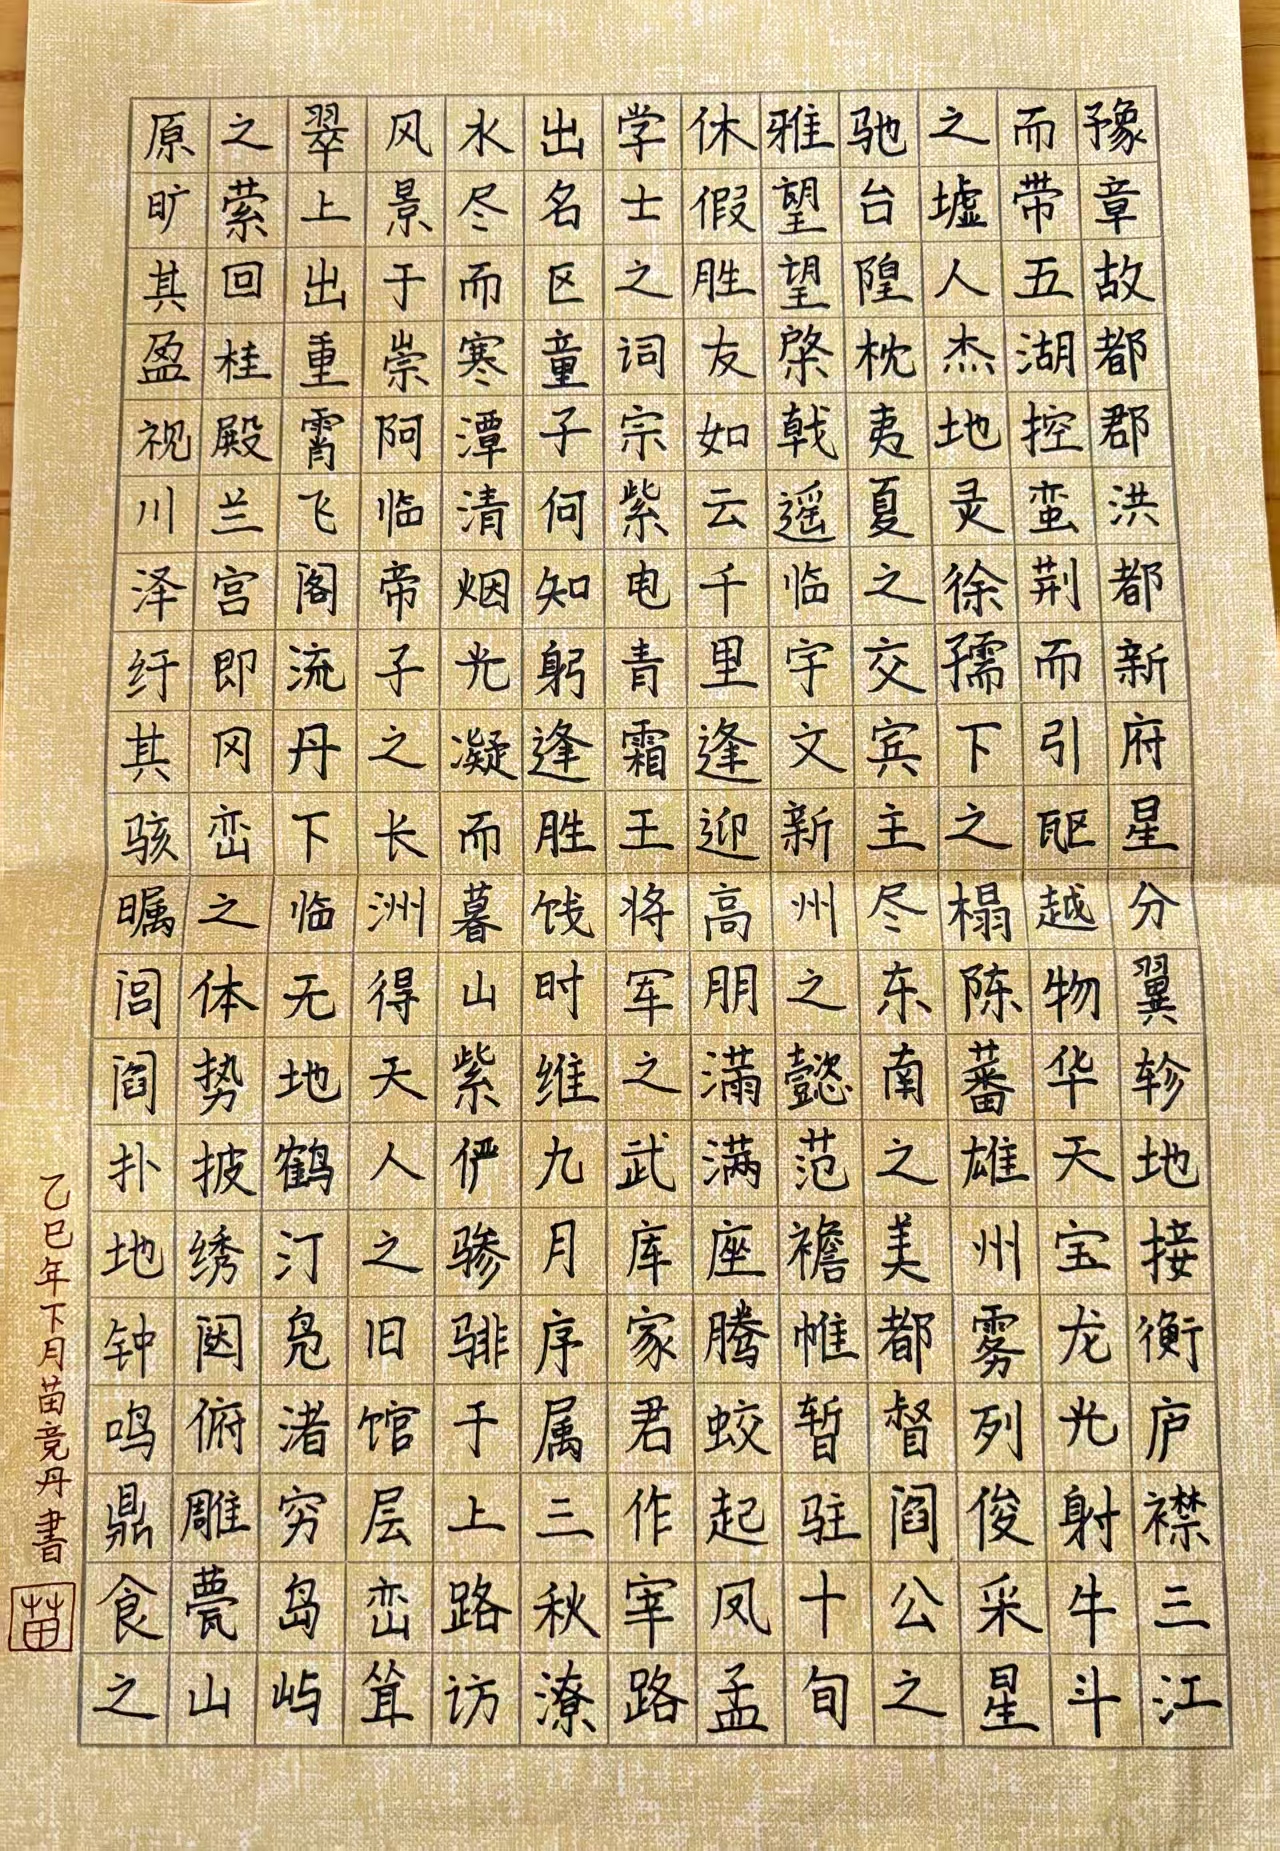 豫章故都郡洪都新府星分翼轸地接衡庐襟三江
而带五湖控蛮荆而引瓯越物华天宝龙光射牛斗
之墟人杰地灵徐孺下之榻陈蕃雄州雾列俊采星
驰台隍枕夷夏之交宾主尽东南之美都督阎公之
雅望望棨戟遥临宇文新州之懿范襜帷暂驻十旬
休假胜友如云千里逢迎高朋满满座腾蛟起凤孟
学士之词宗紫电青霜王将军之武库家君作宰路
出名区童子何知躬逢胜饯时维九月序属三秋潦
水尽而寒潭清烟光凝而暮山紫俨骖𬴂于上路访
风景于崇阿临帝子之长洲得天人之旧馆层峦耸
翠上出重霄飞阁流丹下临无地鹤汀凫渚穷岛屿
之萦回桂殿兰宫即冈峦之体势披绣闼俯雕甍山
原旷其盈视川泽纡其骇瞩闾阎扑地钟鸣鼎食之
乙巳年下月苗竞丹書
苗